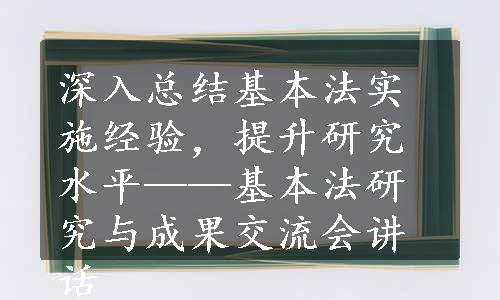 深入总结基本法实
施经验，提升研究
水平——基本法研
究与成果交流会讲
话